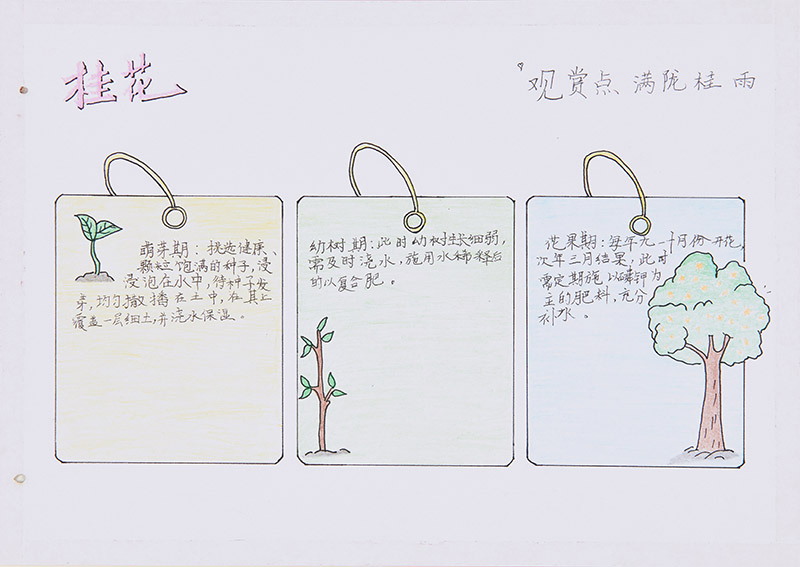 桂花
观赏点 满陇桂雨
萌芽期：挑选健康、
颗粒饱满的种子，浸
浸泡在水中，待种子发
芽，均匀撒播在土中，在其上
覆盖一层细土，并浇水保湿。
幼树期：此时幼树生长细弱，
需及时浇水，施用水稀释后
的以复合肥。
花果期：每年九一十月份开花，
次年三月结果，此时
需定期施以磷钾为
主的肥料，充分
补水。